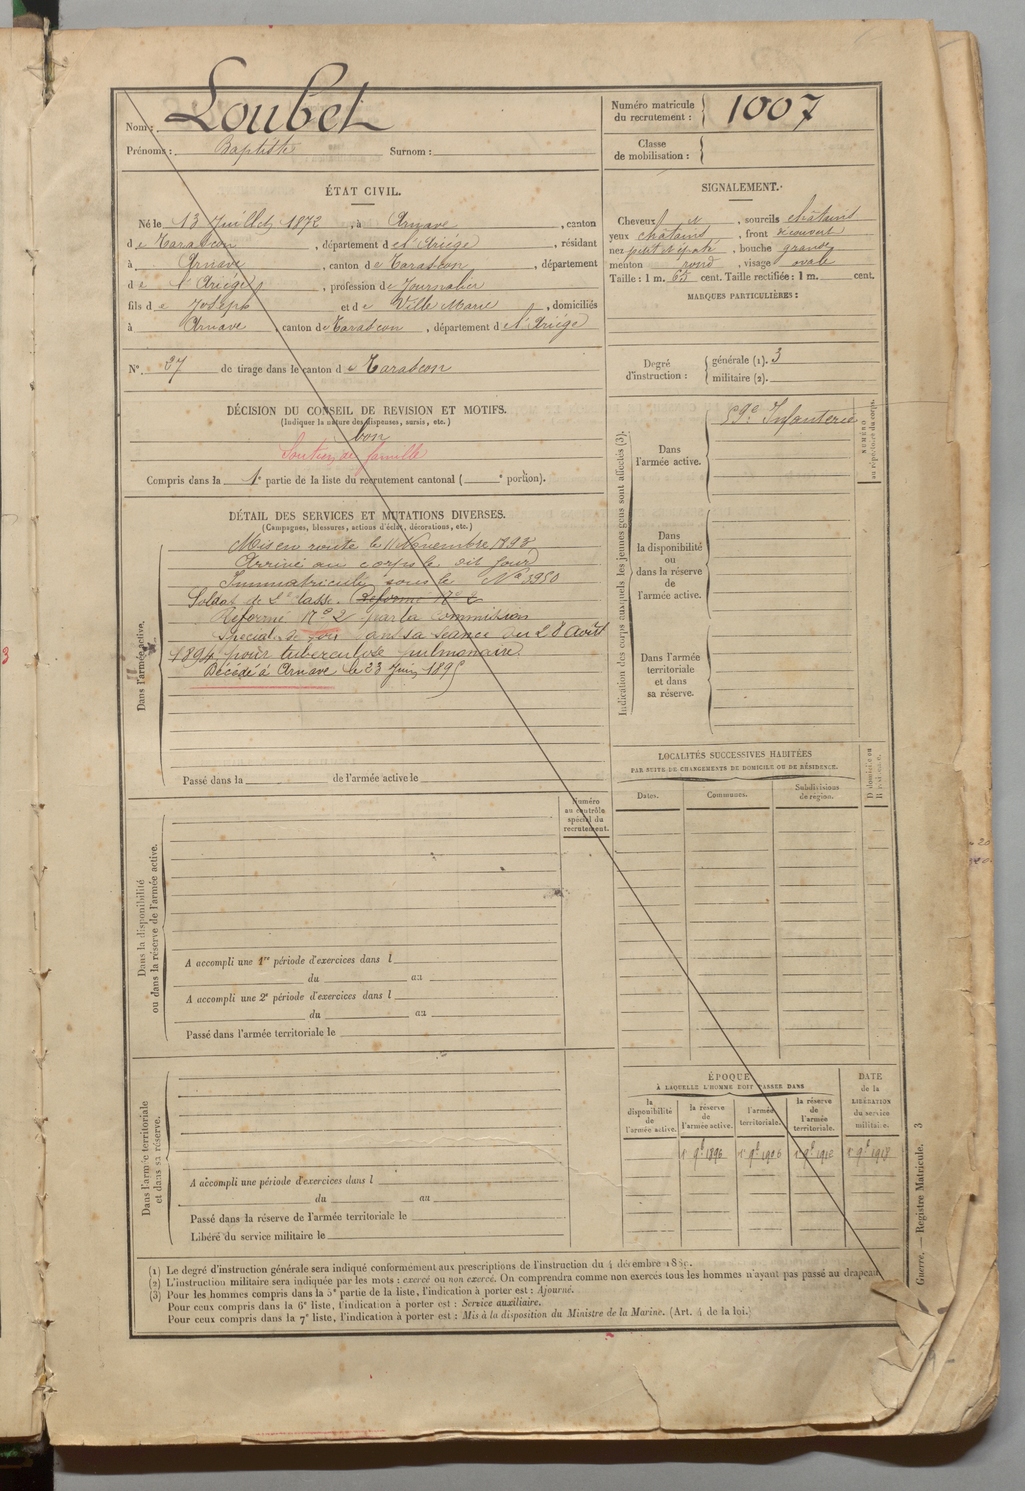 Nom : Loubet
Prénoms : Baptiste Surnom :
Numéro matricule du recrutement : 1007
Classe de mobilisation :
ÉTAT CIVIL.
Né le 13 Juillet 1872, à Arnave, canton
de Tarascon, département de l'Ariége, résidant
à Arnave, canton de Tarascon, département
de l'Ariége, profession de Journalier
fils de Joseph et de Ville Marie, domiciliés
à Arnave, canton de Tarascon, département de l'Ariége
N° 37 de tirage dans le canton de Tarascon
SIGNALEMENT.
Cheveux et, sourcils châtains
yeux châtains, front découvert
nez petit et épaté, bouche grande
menton rond, visage ovale
Taille : 1 m. 65 cent. Taille rectifiée : 1 m. cent.
MARQUES PARTICULIÈRES :
Degré d'instruction : générale (1). 3
militaire (2).
DÉCISION DU CONSEIL DE REVISION ET MOTIFS.
(Indiquer la nature des dispenses, sursis, etc.)
bon
Soutien de famille
Compris dans la 1e partie de la liste du recrutement cantonal ( e portion).
DÉTAIL DES SERVICES ET MUTATIONS DIVERSES.
(Campagnes, blessures, actions d'éclat, décorations, etc.)
Dans l'armée active.
Mis en route le 11 Novembre 1893
Arrivé au corps le dit jour
Immatriculé sous le N° 3950
Soldat de 2e classe. Réformé N° 2
Réformé N° 2 par la commission
spéciale de Foix dans sa séance du 28 Août
1894 pour tuberculose pulmonaire
Décédé à Arnave le 23 Juin 1895
Passé dans la de l'armée active le
Indication des corps auxquels les jeunes gens sont affectés (3).
Dans l'armée active.
59e Infanterie
NUMÉRO au répertoire du corps.
Dans la disponibilité ou dans la réserve de l'armée active.
Dans l'armée territoriale et dans sa réserve.
LOCALITÉS SUCCESSIVES HABITÉES
PAR SUITE DE CHANGEMENTS DE DOMICILE OU DE RÉSIDENCE.
Dates. Communes. Subdivisions de région.
Numéro au contrôle spécial du recrutement.
Dans la disponibilité ou dans la réserve de l'armée active.
A accompli une 1re période d'exercices dans l
du au
A accompli une 2e période d'exercices dans l
du au
Passé dans l'armée territoriale le
Dans l'armée territoriale et dans sa réserve.
A accompli une période d'exercices dans l
du au
Passé dans la réserve de l'armée territoriale le
Libéré du service militaire le
ÉPOQUE
À LAQUELLE L'HOMME DOIT PASSER DANS
la disponibilité de l'armée active. la réserve de l'armée active. l'armée territoriale. la réserve de l'armée territoriale.
DATE de la LIBÉRATION du service militaire.
1er 9bre 1896 1er 9bre 1906 1er 9bre 1912 1er 9bre 1918
(1) Le degré d'instruction générale sera indiqué conformément aux prescriptions de l'instruction du 4 décembre 1889.
(2) L'instruction militaire sera indiquée par les mots : exercé ou non exercé. On comprendra comme non exercés tous les hommes n'ayant pas passé au drapeau.
(3) Pour les hommes compris dans la 5e partie de la liste, l'indication à porter est : Ajourné.
Pour ceux compris dans la 6e liste, l'indication à porter est : Service auxiliaire.
Pour ceux compris dans la 7e liste, l'indication à porter est : Mis à la disposition du Ministre de la Marine. (Art. 4 de la loi.)
Guerre. — Registre Matricule. 3